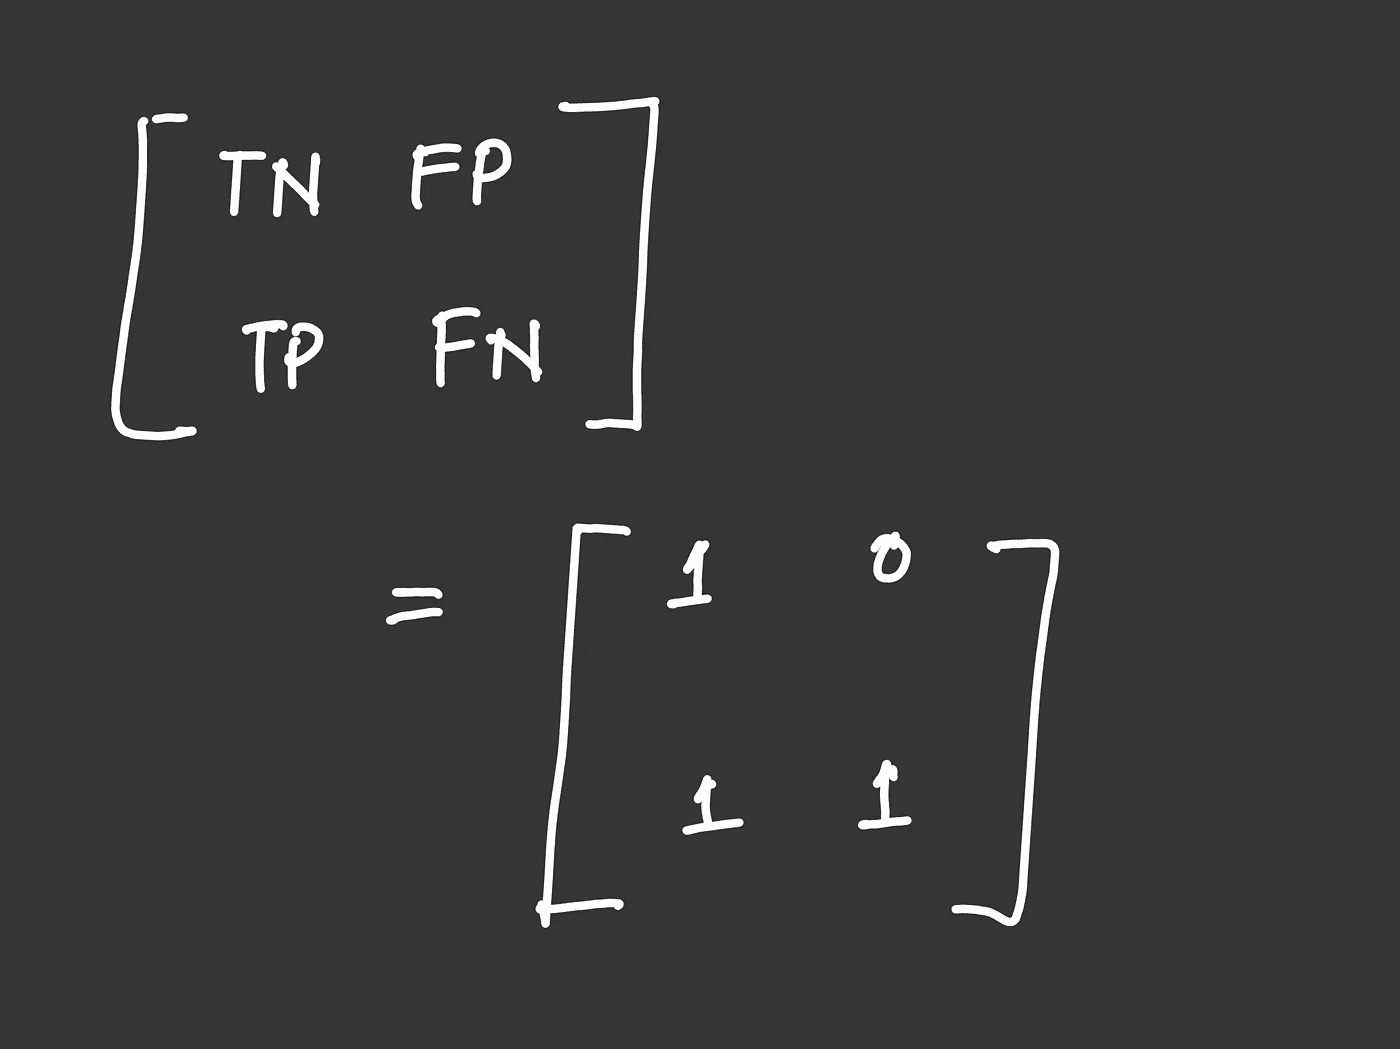 TN FP
TP FN
=
1 0
1 1